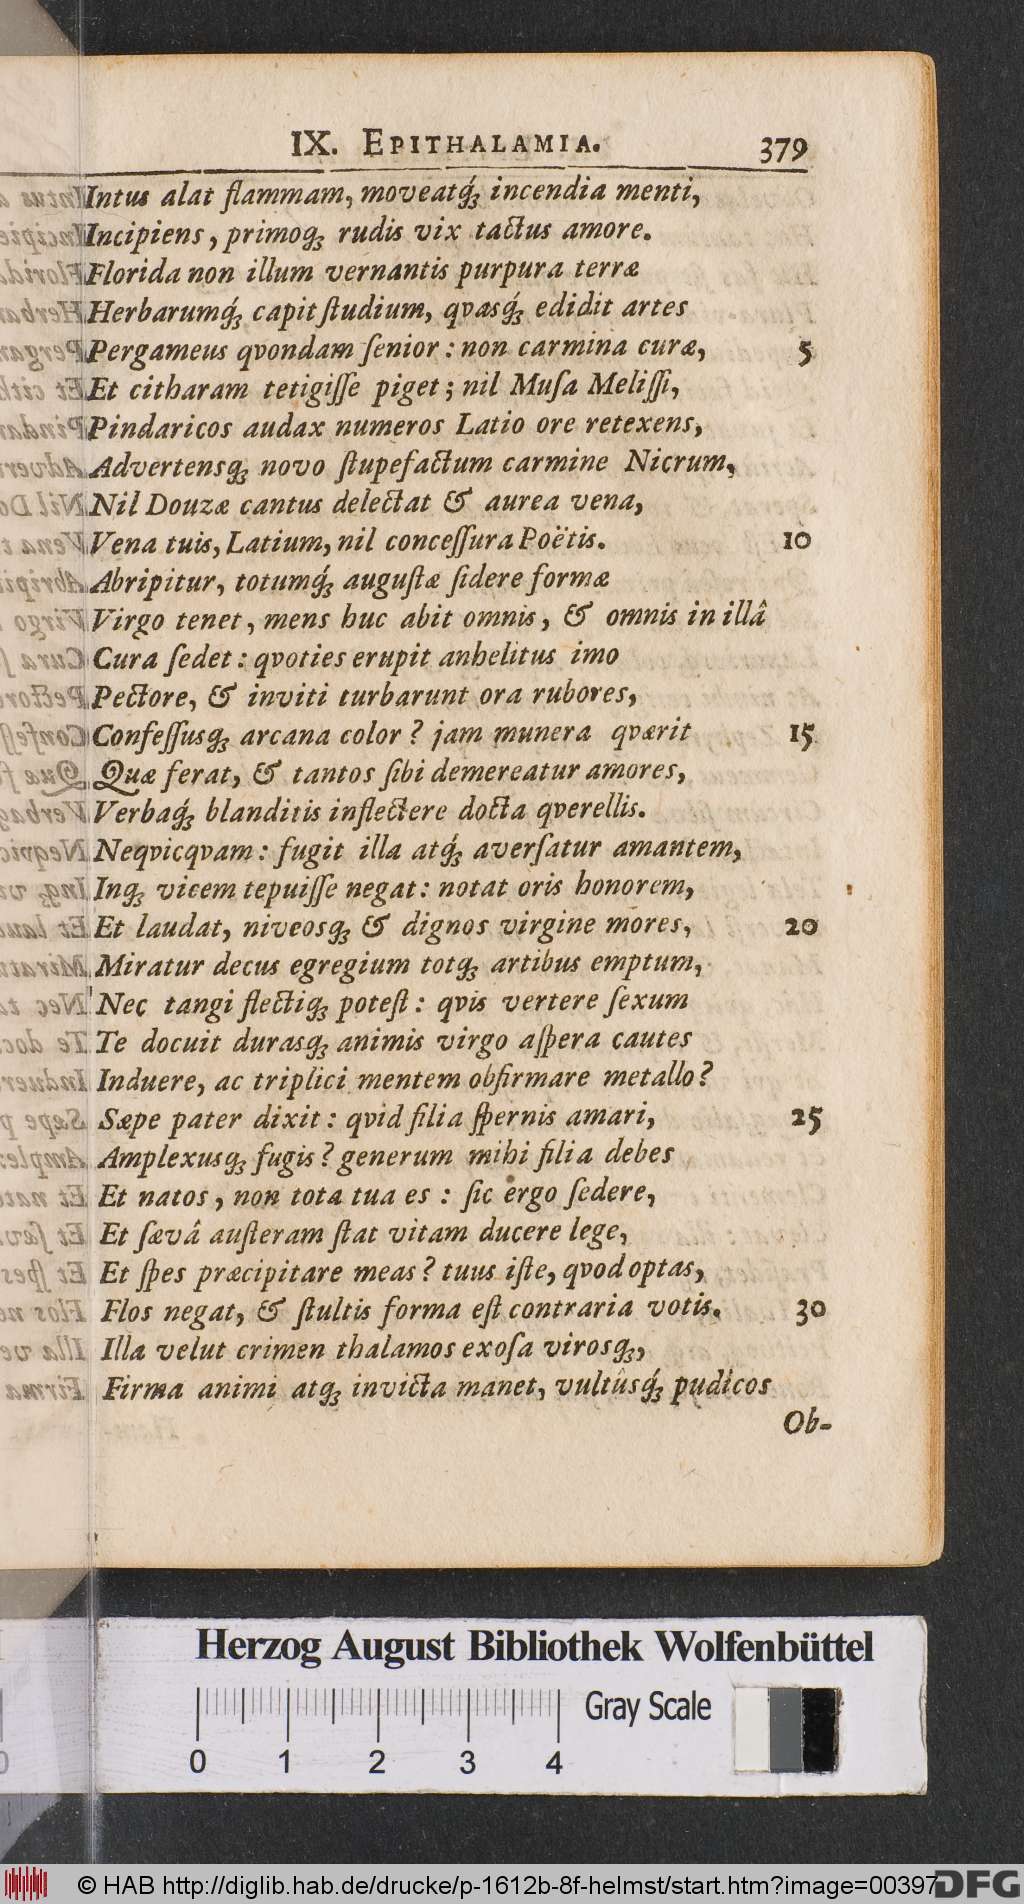 IX. EPITHALAMIA. 379
Intus alat flammam, moveatq́ꝫ incendia menti,
Incipiens, primoqꝫ rudis vix tactus amore.
Florida non illum vernantis purpura terræ
Herbarumq́ꝫ capit ſtudium, qvasq́ꝫ edidit artes
Pergameus qvondam ſenior: non carmina curæ, 5
Et citharam tetigiſſe piget; nil Muſa Meliſſi,
Pindaricos audax numeros Latio ore retexens,
Advertensqꝫ novo ſtupefactum carmine Nicrum,
Nil Douzæ cantus delectat & aurea vena,
Vena tuis, Latium, nil conceſſura Poëtis. 10
Abripitur, totumq́ꝫ auguſtæ ſidere formæ
Virgo tenet, mens huc abit omnis, & omnis in illâ
Cura ſedet: qvoties erupit anhelitus imo
Pectore, & inviti turbarunt ora rubores,
Confeſſusqꝫ arcana color? jam munera qværit 15
Quæ ferat, & tantos ſibi demereatur amores,
Verbaq́ꝫ blanditis inflectere docta qverellis.
Neqvicqvam: fugit illa atq́ꝫ averſatur amantem,
Inqꝫ vicem tepuiſſe negat: notat oris honorem,
Et laudat, niveosqꝫ & dignos virgine mores, 20
Miratur decus egregium totqꝫ artibus emptum,
Nec tangi flectiqꝫ poteſt: qvis vertere ſexum
Te docuit durasqꝫ animis virgo aſpera cautes
Induere, ac triplici mentem obfirmare metallo?
Sæpe pater dixit: qvid filia ſpernis amari, 25
Amplexusqꝫ fugis? generum mihi filia debes
Et natos, non tota tua es: ſic ergo ſedere,
Et ſævâ auſteram ſtat vitam ducere lege,
Et ſpes præcipitare meas? tuus iſte, qvod optas,
Flos negat, & ſtultis forma eſt contraria votis. 30
Illa velut crimen thalamos exoſa virosqꝫ,
Firma animi atqꝫ invicta manet, vultûsq́ꝫ pudicos
Ob-
Herzog August Bibliothek Wolfenbüttel
Gray Scale
0 1 2 3 4
© HAB http://diglib.hab.de/drucke/p-1612b-8f-helmst/start.htm?image=00397
DFG